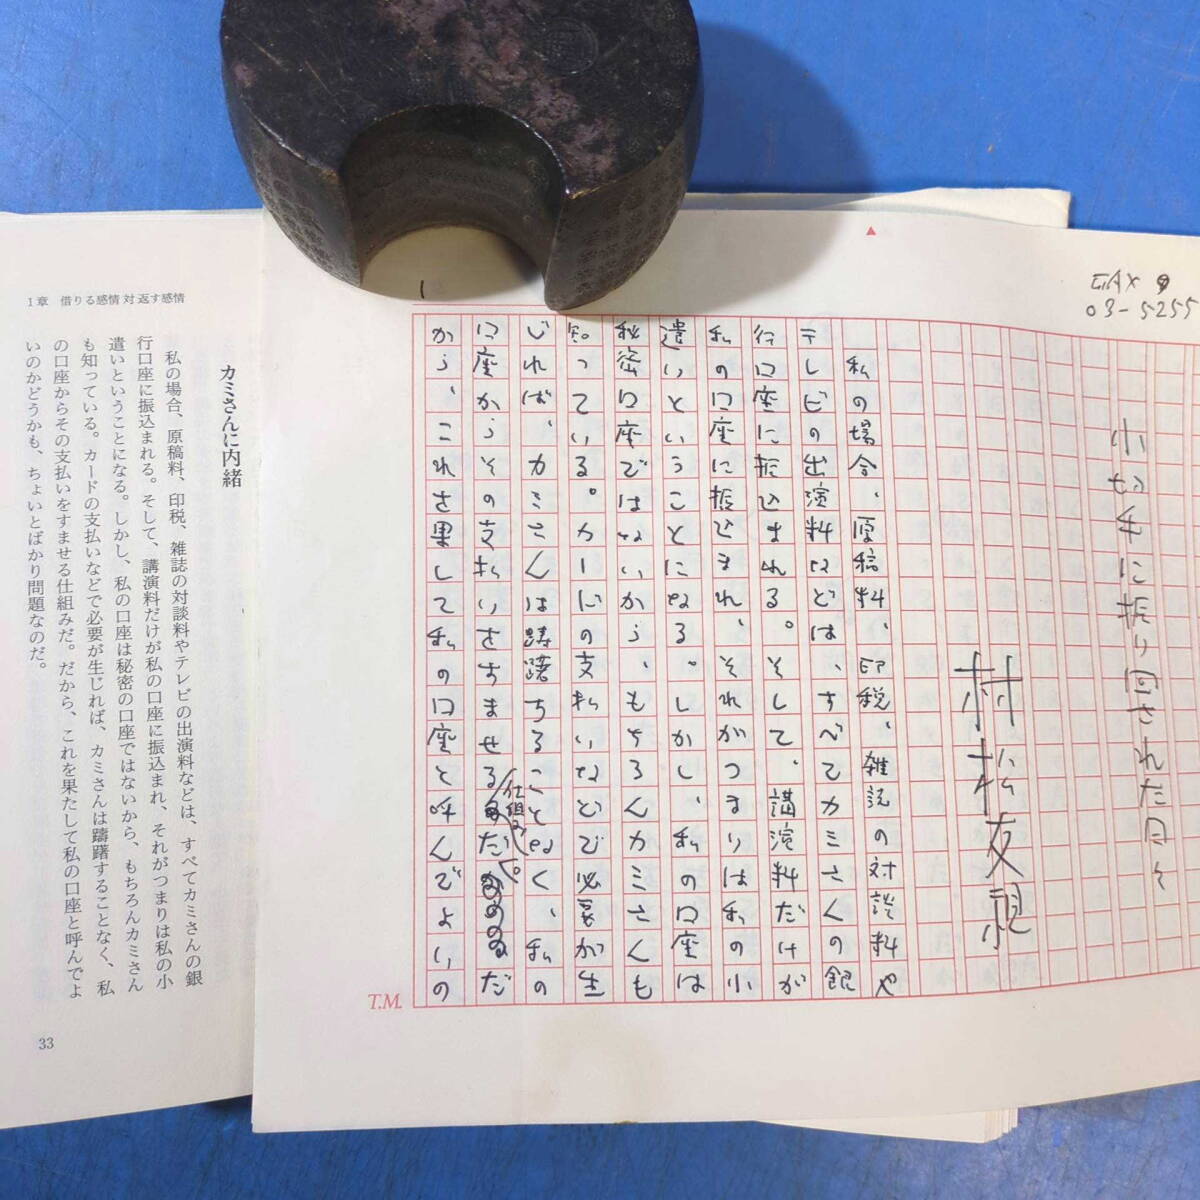 FAX
03-5255
小切手に振り回された日々
村松友視
私の場合、原稿料、印税、雑誌の対談料や
テレビの出演料などは、すべてカミさんの銀
行口座に振込まれる。そして、講演料だけが
私の口座に振込まれ、それがつまりは私の小
遣いということになる。しかし、私の口座は
秘密口座ではないから、もちろんカミさんも
知っている。カードの支払いなどで必要が生
じれば、カミさんは躊躇することなく、私の
口座からその支払いをすませる仕組みだ。だ
から、これを果して私の口座と呼んでよいの
1
T.M.
1章 借りる感情 対 返す感情
カミさんに内緒
私の場合、原稿料、印税、雑誌の対談料やテレビの出演料などは、すべてカミさんの銀
行口座に振込まれる。そして、講演料だけが私の口座に振込まれ、それがつまりは私の小
遣いということになる。しかし、私の口座は秘密の口座ではないから、もちろんカミさん
も知っている。カードの支払いなどで必要が生じれば、カミさんは躊躇することなく、私
の口座からその支払いをすませる仕組みだ。だから、これを果たして私の口座と呼んでよ
いのかどうかも、ちょいとばかり問題なのだ。
33